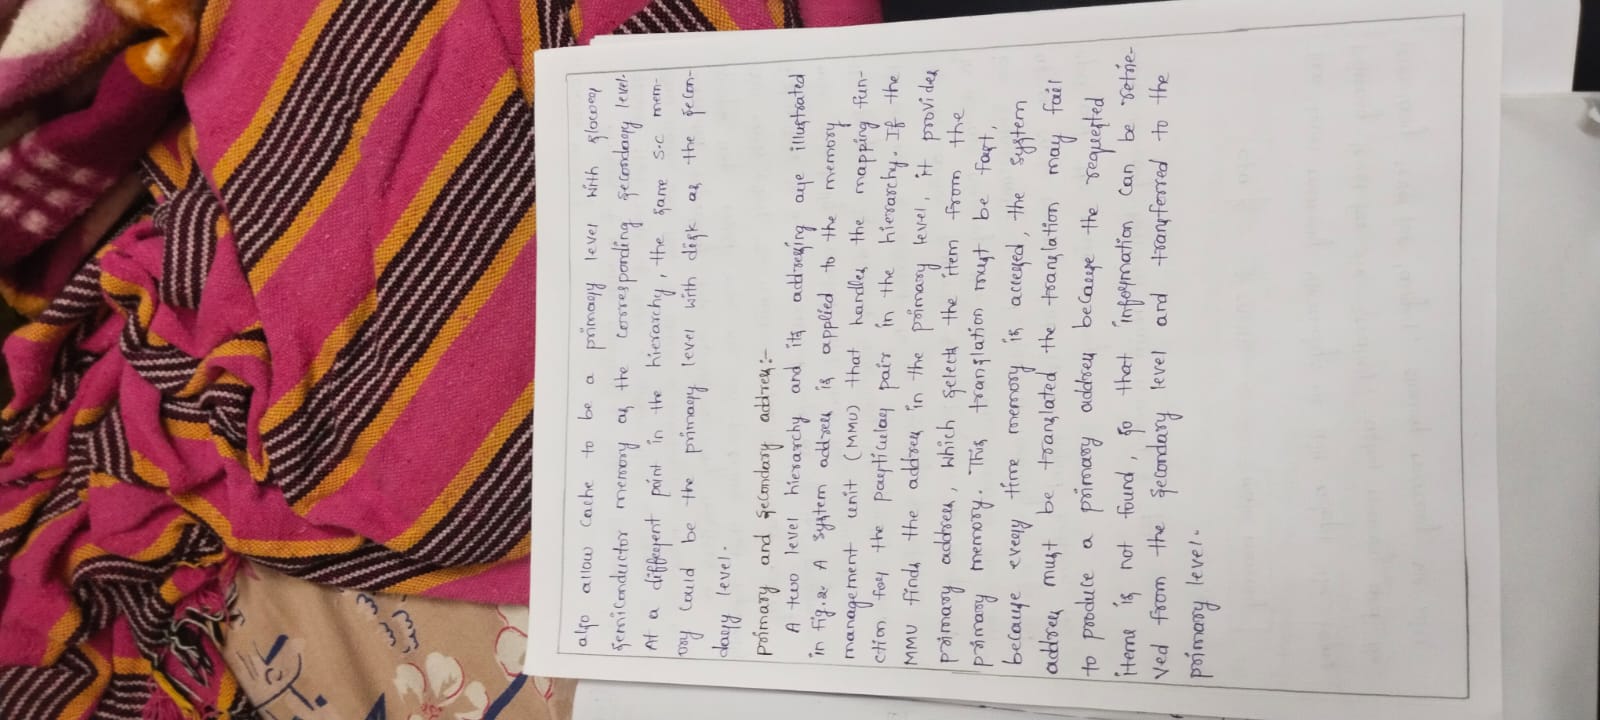 also allow cache to be a primary level with slower
semiconductor memory as the corresponding secondary level.
At a different point in the hierarchy, the same S.C mem-
ory could be the primary level with disk as the secon-
dary level.
primary and secondary address:-
A two level hierarchy and its addressing are illustrated
in fig.2. A system address is applied to the memory
management unit (MMU) that handles the mapping fun-
ction for the particular pair in the hierarchy. If the
MMU finds the address in the primary level, it provides
primary address, which selects the item from the
primary memory. This translation must be fast,
because every time memory is accessed, the system
address must be translated the translation may fail
to produce a primary address because the requested
items is not found, so that information can be retrie-
ved from the secondary level and transferred to the
primary level.